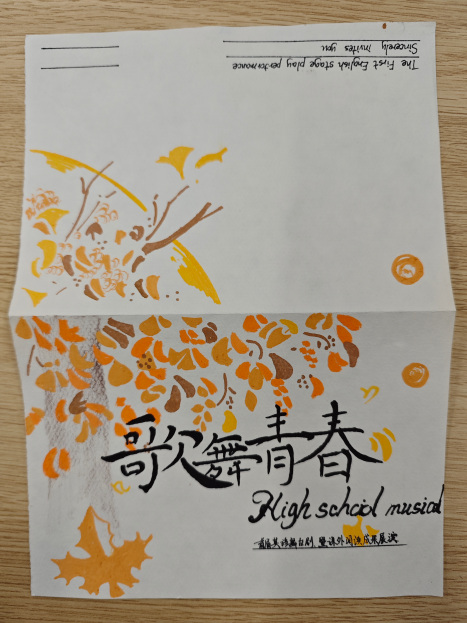 The First English stage play performance
Sincerely invites you
歌舞青春
High school musical
首届英语舞台剧 暨课外阅读成果展演